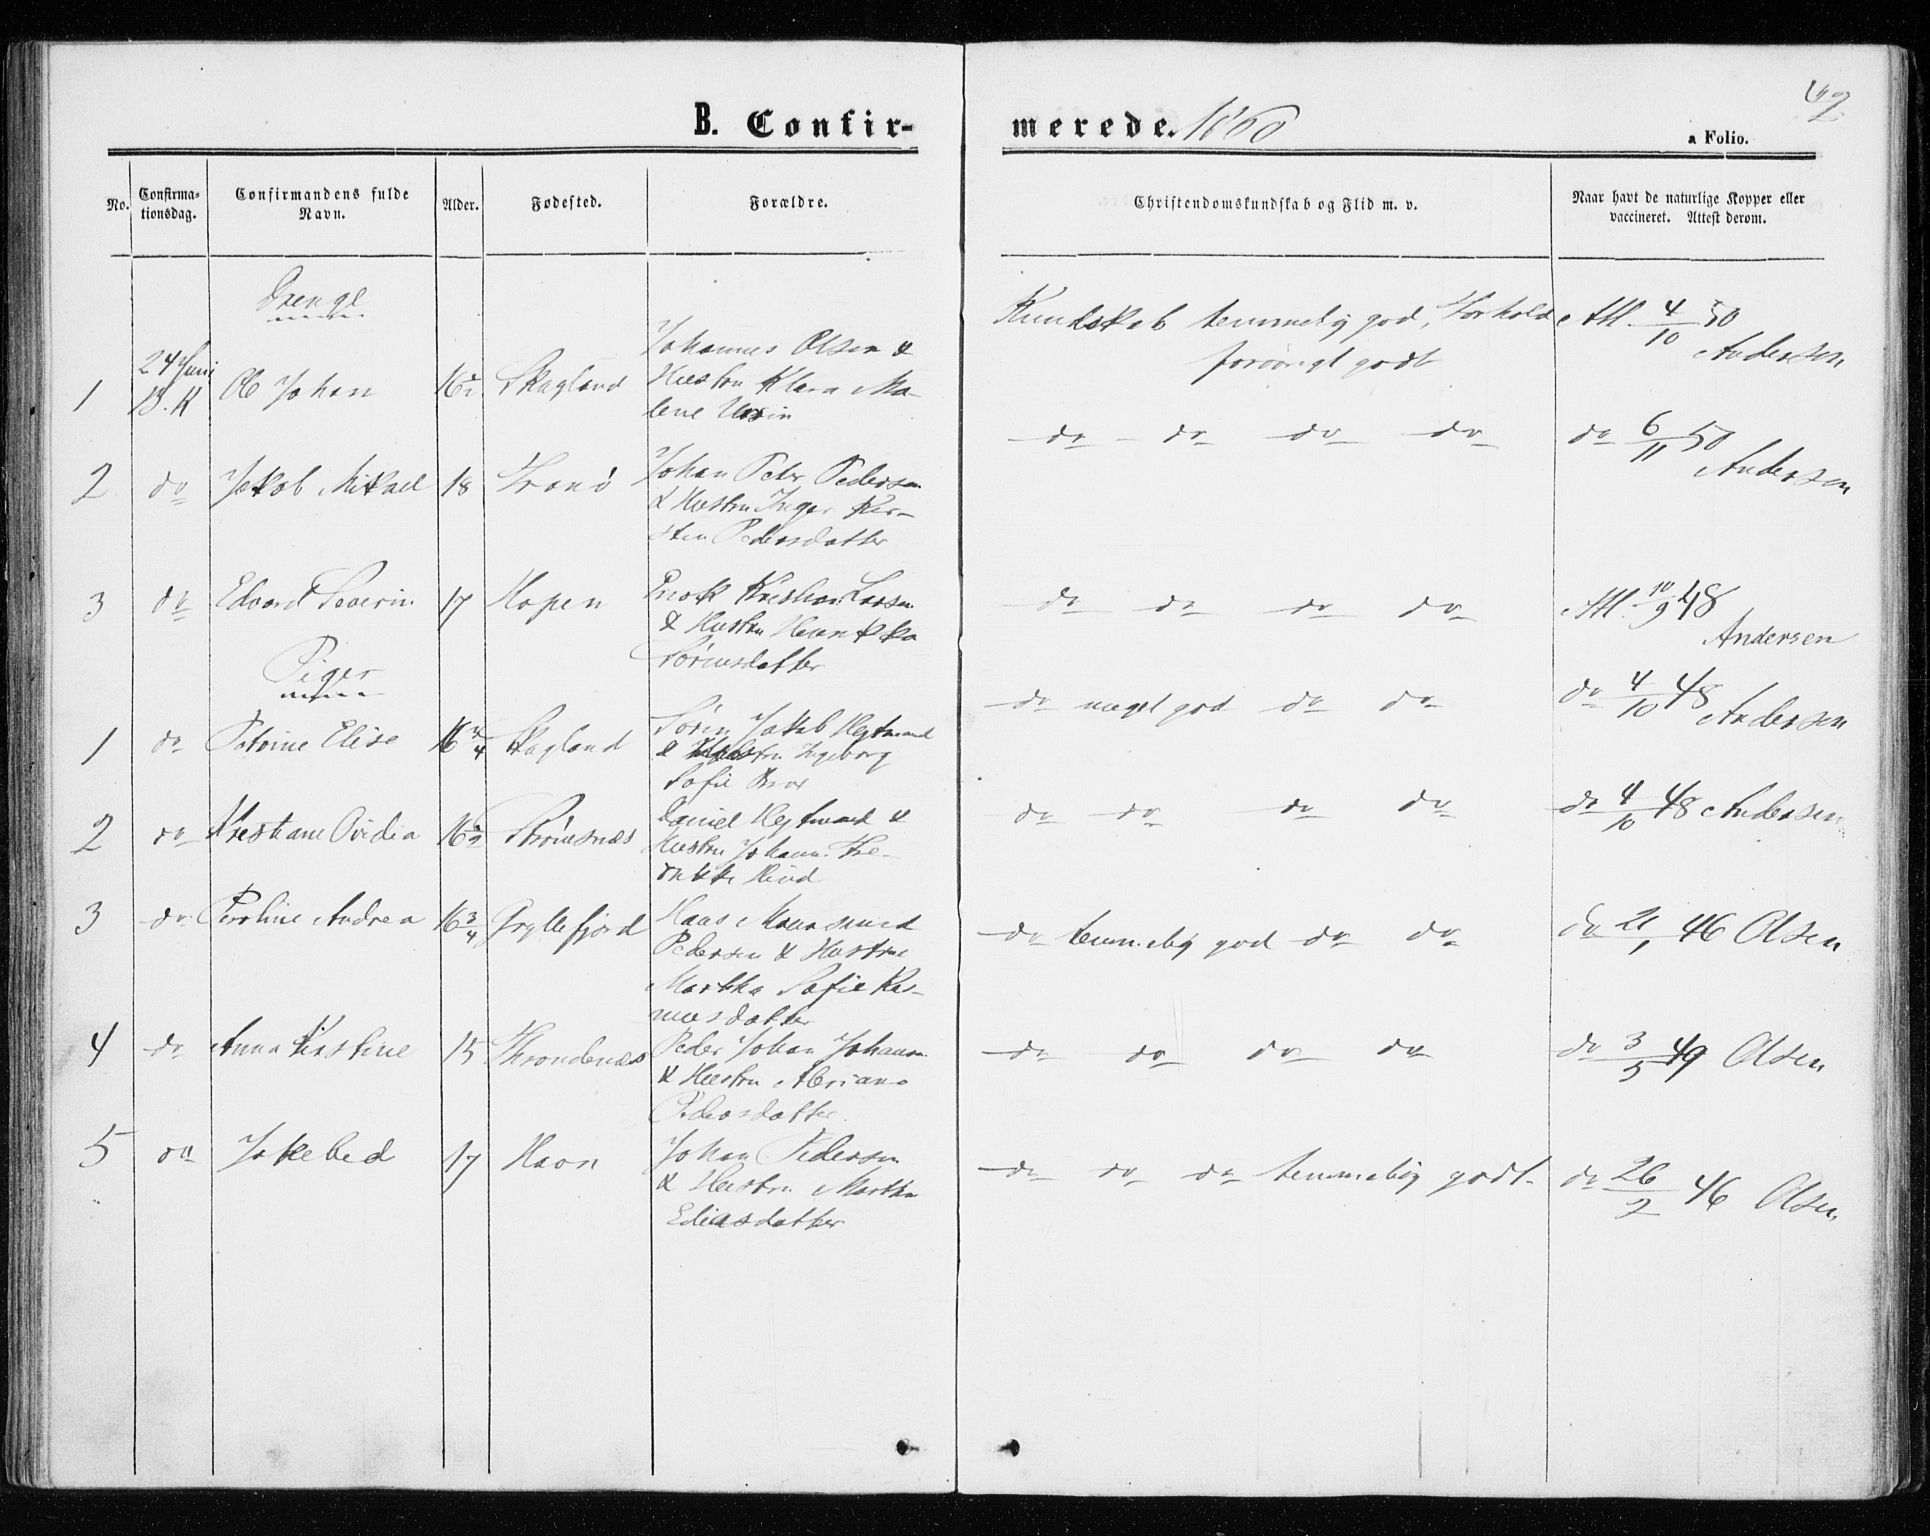 42
B. Confir-
merede. 1860
a Folio.
No.
Confirma-
tionsdag.
Confirmandens fulde
Navn.
Alder.
Fødested.
Forældre.
Christendomskundskab og Flid m. v.
Naar havt de naturlige Kopper eller
vaccineret. Attest derom.
Drenge
1 24 Juni Ole Johan 16½ Skagland Johannes Olsen &
B. K Hustru Klara Ma-
lene Ursin
Kundskab temmelig god, Forhold Att. 4/10 50
forøvrigt godt Andersen
2 do Jakob Mikael 18 Tranø Johan Peder Pedersen
& Hustru Inger Kir-
sten Pedersdatter
do do do do do 6/11 50
Andersen
3 do Edvard Severin 17 Hopen Enok Kristian Larsen
& Hustru Henrikka
Sørensdatter
do do do do Att. 10/9 48
Andersen
Piger
1 do Petrine Elise 16¾ Skagland Søren Jakob Hejtmand
& Hustru Ingeborg
Sofie
do meget god do do do 4/10 48
Andersen
2 do Kristiane Ovidia 16½ Strømsnæs Daniel Hejtmand &
Hustru Johanna Fre-
drikke Hind
do do do do do 4/10 48 Andersen
3 do Peroline Andrea 16¾ Gryllefjord Hans Mons
Pedersen & Hustru
Martha Sofie Ras-
musdatter
do temmelig god do do do 46 Olsen
4 do Anna Kirstine 15 Throndenæs Peder Johan Johansen
& Hustru Abriana
Pedersdatter
do do do do do 3/5 49 Olsen
5 do Jokebed 17 Havn Johan Pedersen
& Hustru Martha
Eliasdatter
do do do temmelig godt. do 26/2 46 Olsen